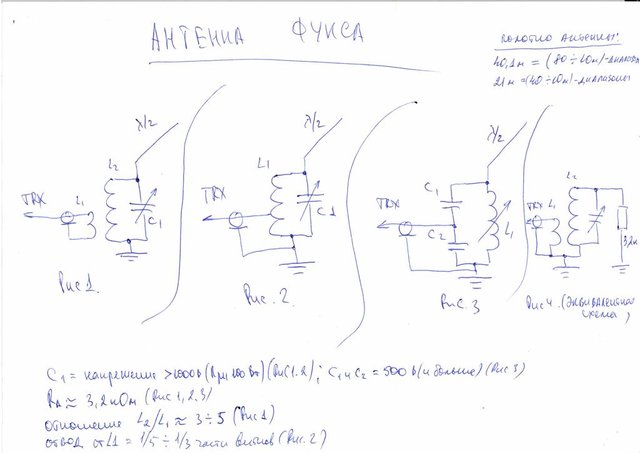 АНТЕННА ФУКСА
ПОЛОТНО АНТЕННЫ:
40,1м = (80÷10м)-диапазоны
21м = (40÷10м)-диапазоны
λ/2
L2
TRX
L1
C1
Рис 1.
λ/2
L1
TRX
C1
Рис. 2
λ/2
C1
TRX
C2
L1
Рис. 3
L2
TRX
L1
3,2к
Рис 4. (Эквивалентная схема)
C1 = напряжение >1000в (при 100 Вт) (Рис 1.2); C1 и C2 = 500 в (и больше) (Рис 3)
RA ≈ 3,2 кОм (Рис 1,2,3)
отношение L2/L1 ≈ 3÷5 (Рис 1)
отвод от L1 = 1/5 ÷ 1/3 части витков (Рис. 2)